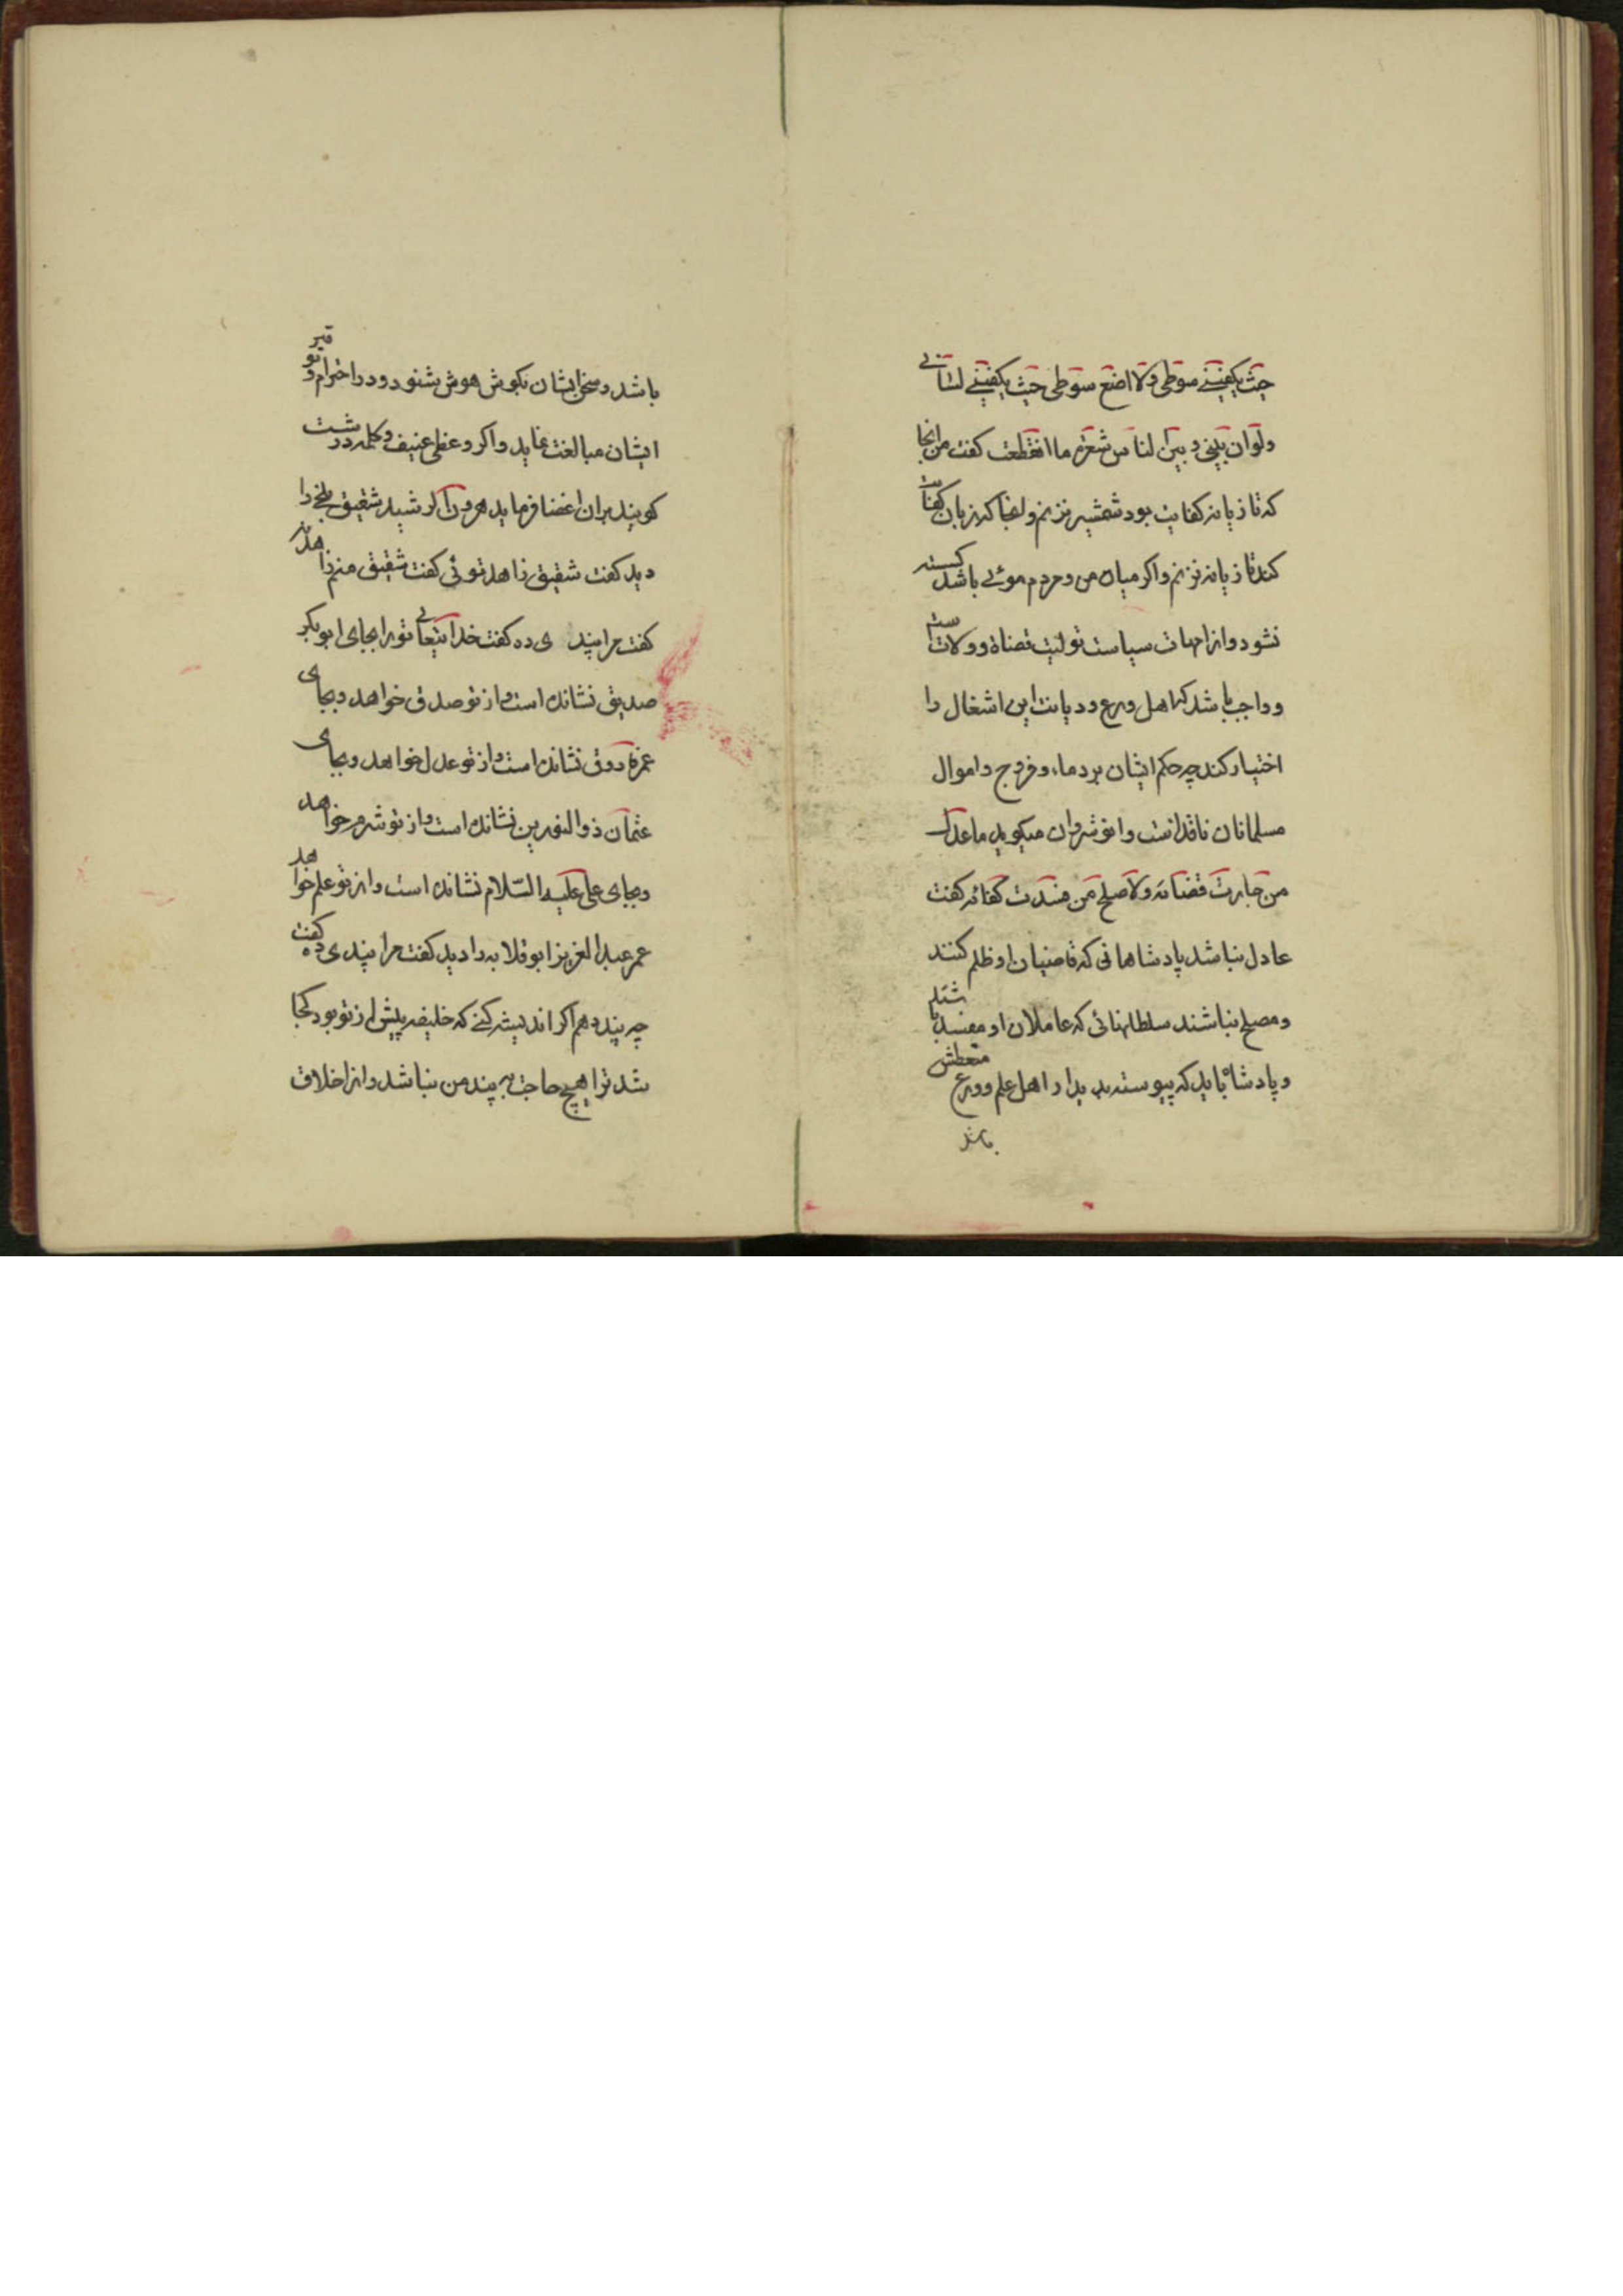 حیث یکفینی سوطی ولا اضع سوطی حیث یکفینی لسانی
ولو ان بینی و بین الناس شعرة ما انقطعت کفت من انجا
که تازیانه کفایت بود شمشیر نزنم و انجا که زبان کفایت
کند تازیانه نزنم و اکر میان من و مردم موئی باشد کسسته
نشود و از امهات سیاست تولیت قضاة و ولات است
و واجب باشد که اهل ورع و دیانت این اشغال را
اختیار کند چه حکم ایشان بر دماء و فروج و اموال
مسلمانان نافذ است و انوشروان میکوید ما عدل
من جارت قضاته ولا صلح من فسدت کفاته کفت
عادل نباشد پادشاهانی که قاضیان او ظلم کنند
و مصلح نباشند سلطانهائی که عاملان او مفسد باشند
و پادشاه باید که پیوسته بدیدار اهل علم و ورع متعطش
باشد
باشد و سخن ایشان بکوش هوش شنود و در احترام و توقیر
ایشان مبالغت نماید و اکر وعظی عنیف و کلمه درشت
کویند بران اغضا فرماید هرون الرشید شقیق بلخی را
دید کفت شقیق زاهد توئی کفت شقیق منم زاهد نه
کفت مرا پندی ده کفت خدایتعالی تو را بجای ابوبکر
صدیق نشانده است و از تو صدق خواهد و بجای
عمر فاروق نشانده است و از تو عدل خواهد و بجای
عثمان ذوالنورین نشانده است و از تو شرم خواهد
و بجای علی علیه السّلام نشانده است و از تو علم خواهد
عمر عبدالعزیز ابو قلابه را دید کفت مرا پندی ده کفت
چه پند دهم اکر اندیشه کنی که خلیفه پیش از تو بود کجا
شد ترا هیچ حاجت به پند من نباشد و از اخلاق